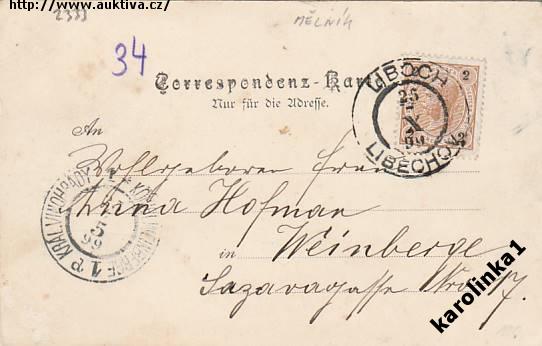 http://www.auktiva.cz/
2333
MĚLNÍK
34
Correspondenz-Karte
Nur für die Adresse.
LIBOCH
25
X
99
LIBĚCHOV
2
2
An
Wohlgeboren Frau
Anna Hofman
in Weinberge
Sazavagasse Nro 17.
KRÁL. VINOHRADY
5
99
1 P
karolinka1